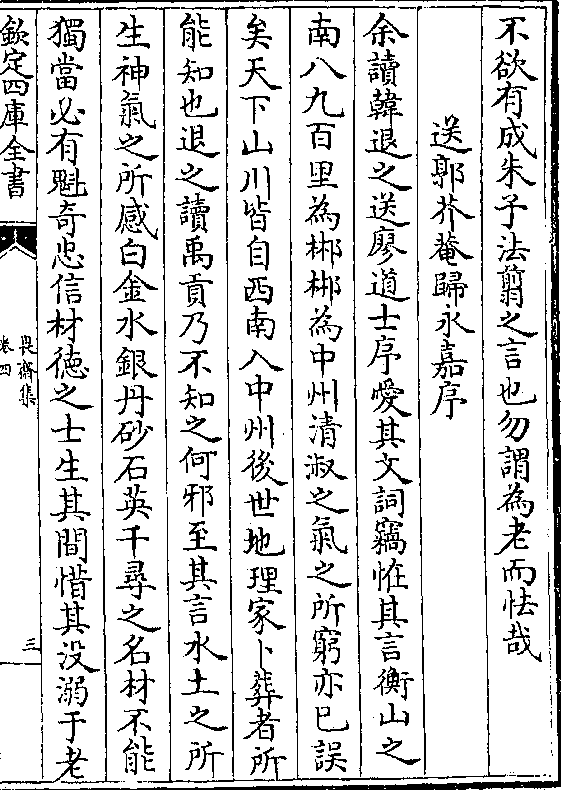 不欲有成朱子法翦之言也勿謂為老而怯哉
送郭芥菴歸永嘉序
余讀韓退之送廖道士序愛其文詞竊恠其言衡山之
南八九百里為郴郴為中州清淑之氣之所窮亦已誤
矣天下山川皆自西南入中州後世地理家卜葬者所
能知也退之讀禹貢乃不知之何邪至其言水土之所
生神氣之所感白金水銀丹砂石英千尋之名材不能
獨當必有魁奇忠信材徳之士生其間惜其没溺于老
欽定四庫全書
畏齋集
卷四
三